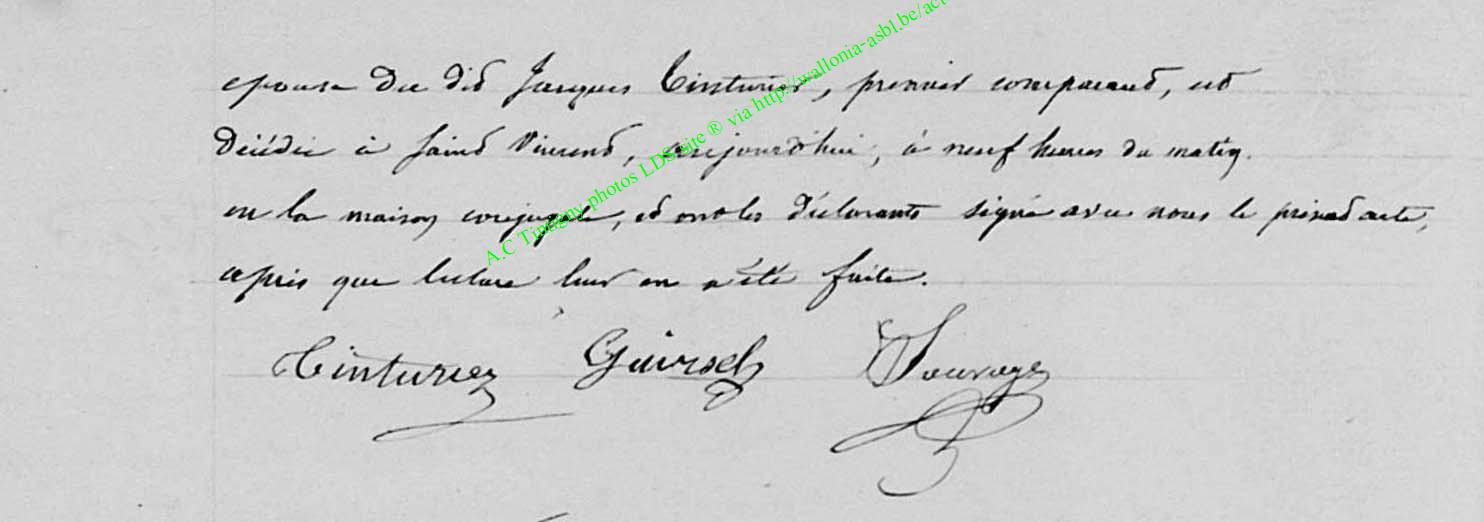 épouse du dit Jacques Tinturier, premier comparant, est
décédée à Saint Vincent, aujourd'hui, à neuf heures du matin
en la maison conjugale, et ont les déclarants signé avec nous le présent acte,
après que lecture leur en a été faite.
Tinturier Goursch Sauvage
A.C Tintigny photos LDS site ® via http://wallonia-asbl.be/act